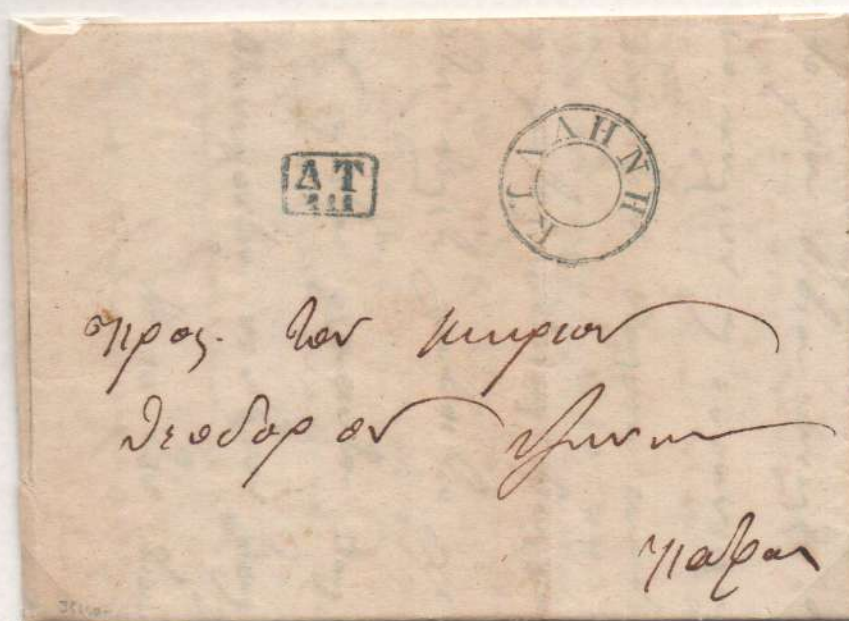 ΔΤ
ΚΥΛΛΗΝΗ
προς. τον κυριον
Θεοδορον
πατρας